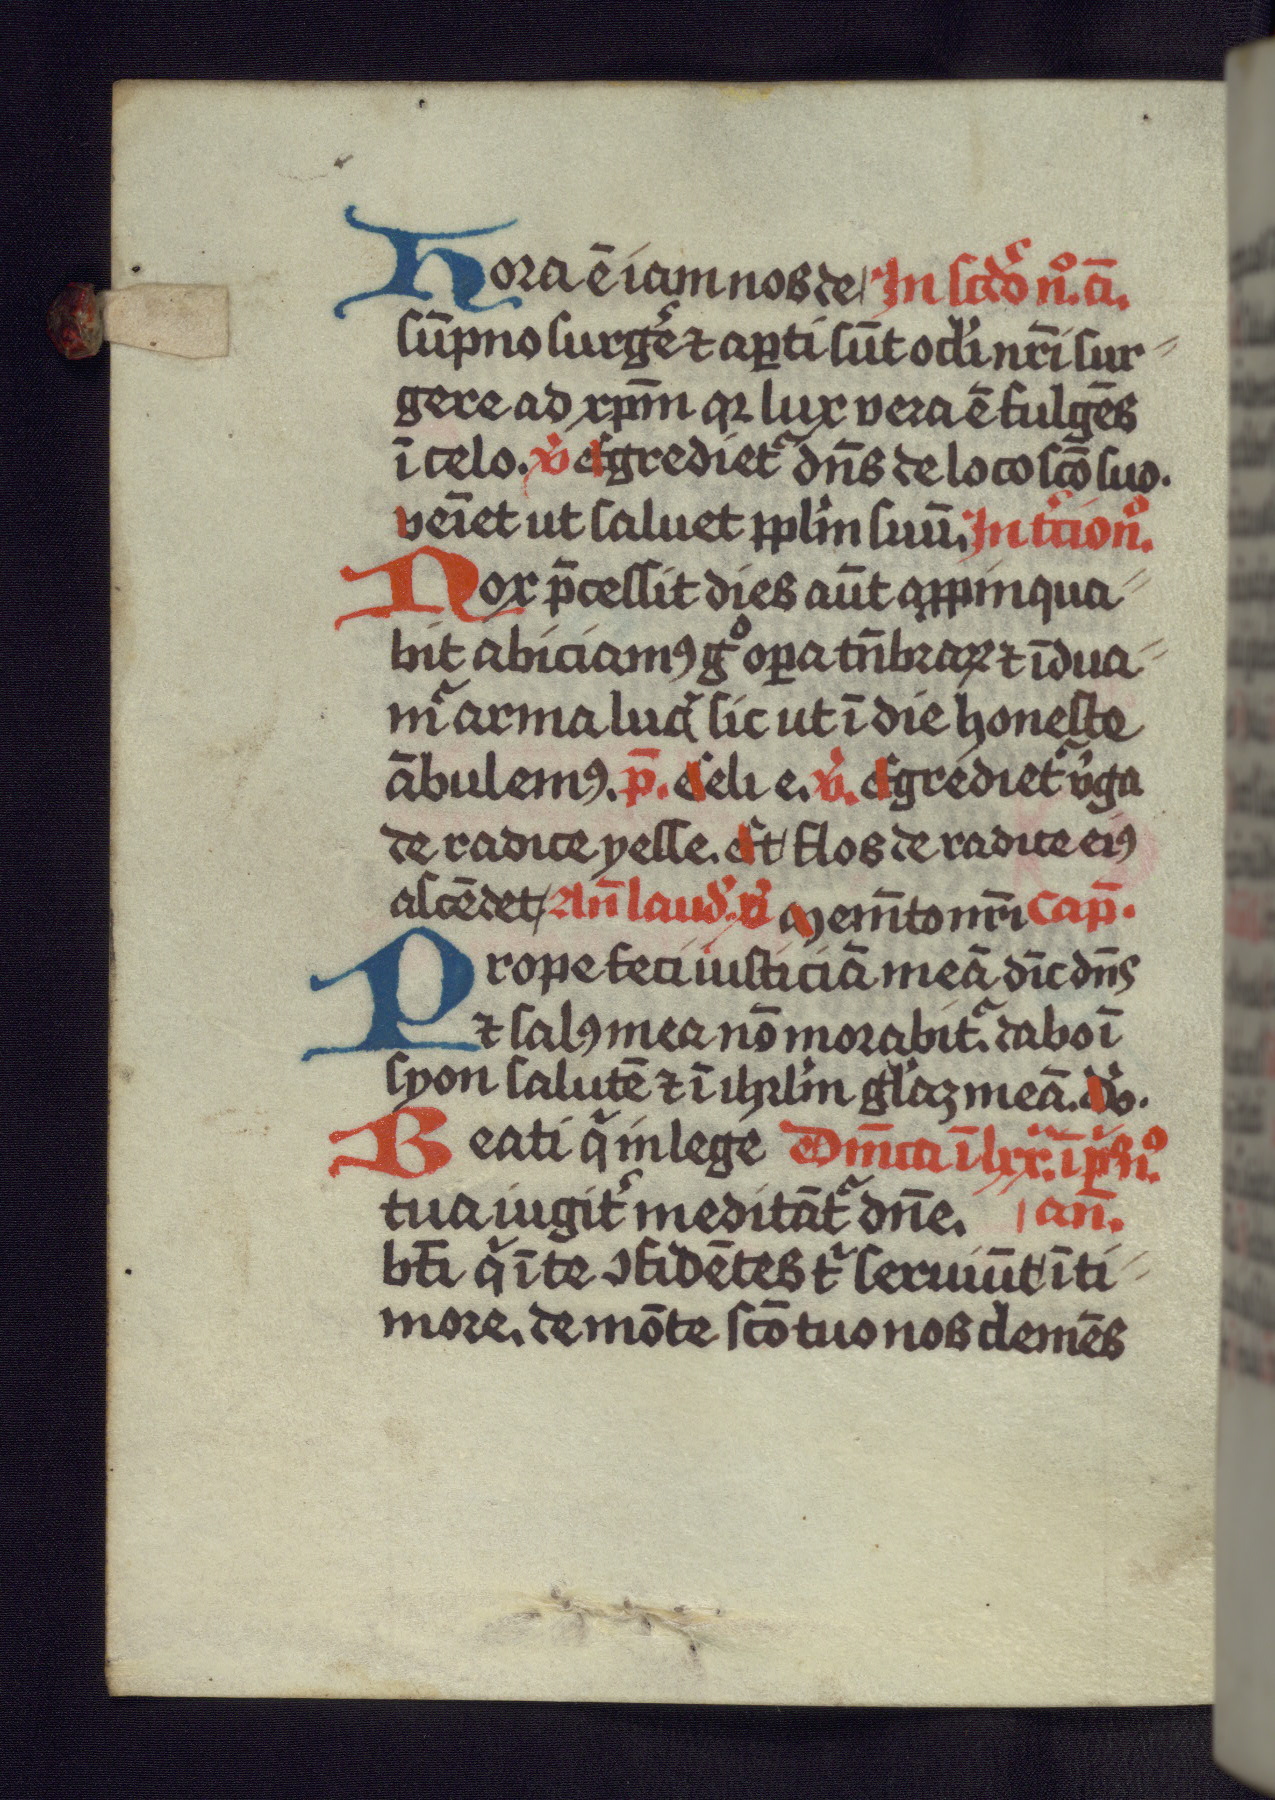 Hora ē iam nos de In scdo nº. a̅.
sūpno surgēr ⁊ apti sūt oc̄li nr̄i sur〃
gere ad xpm̄ qꝛ lux vera ē fulgēs
ī celo. v̄ Egrediet᷑ dn̄s de loco scō suo.
veīet ut saluet pplm̄ suū. In tc̄io nº.
Nox p̄cessit dies aūt appinqua〃
bit abiciamꝰ gº opa tn̄braꝝ ⁊ īdua〃
m᷑ arma luc̄ sic ut ī die honeste
ābulemꝰ. p̄. Eseli e. v̄. Egrediet᷑ v̄ga
de radice yesse. Et flos de radice eiꝰ
ascēdet / An̄ laud̄. v̄ Mem̄to nr̄i Cap̄.
Prope feci iusticiā meā dīc dn̄s
⁊ salꝰ mea nō morabit᷑. dabo ī
syon salutē ⁊ ī ihrlm̄ gl̄aꝫ meā. d̄o.
Beati q̄ in lege Dn̄ica ī lxx. ī pº nº.
tua iugit᷑ meditāt᷑ dn̄e. an̄.
bt̄i q̄ ī te ꝯfidētes t᷑ seruiūt ī ti〃
more. de mōte scō tuo nos clemēs